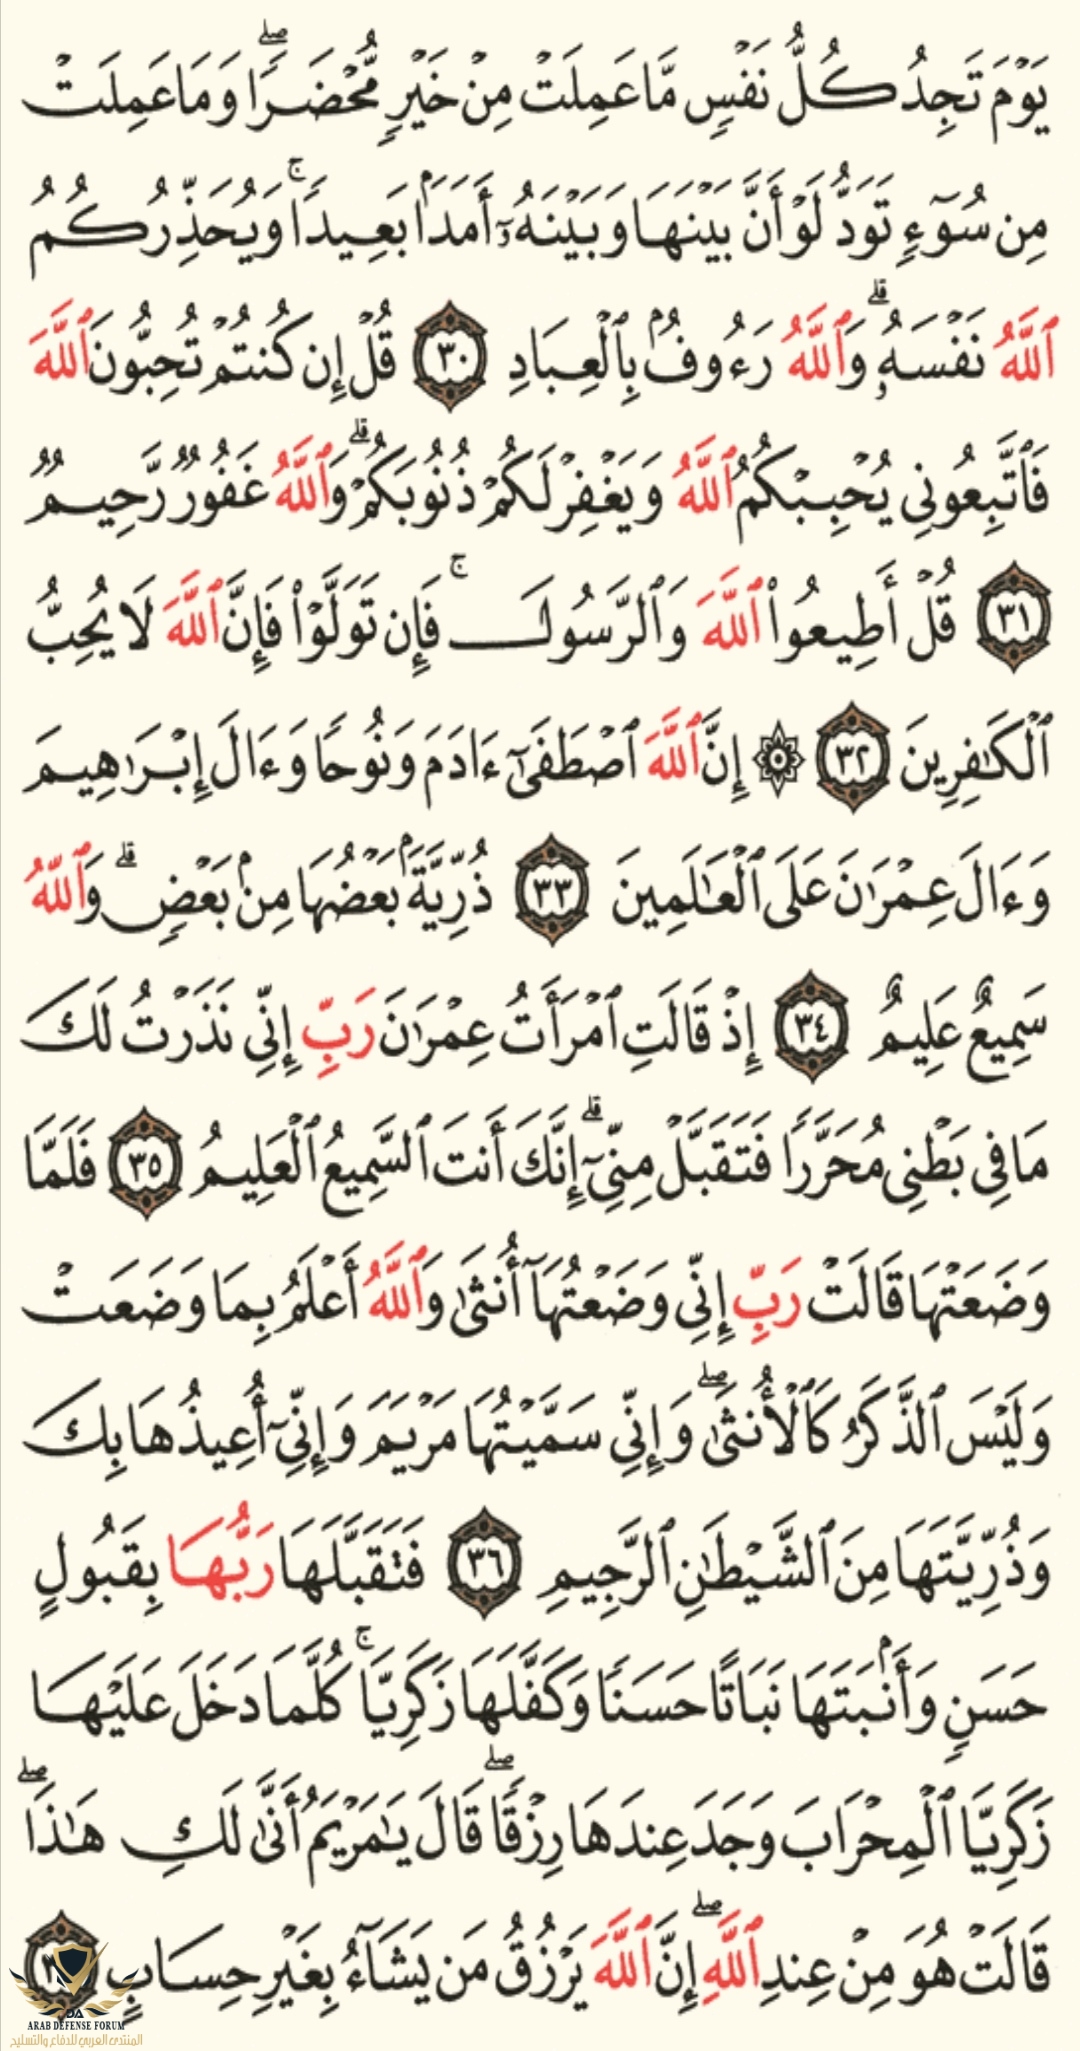 يَوْمَ تَجِدُ كُلُّ نَفْسٍ مَّا عَمِلَتْ مِنْ خَيْرٍ مُّحْضَرًا ۖ وَمَا عَمِلَتْ
مِن سُوٓءٍ تَوَدُّ لَوْ أَنَّ بَيْنَهَا وَبَيْنَهُۥٓ أَمَدَۢا بَعِيدًا ۚ وَيُحَذِّرُكُمُ
ٱللَّهُ نَفْسَهُۥ ۗ وَٱللَّهُ رَءُوفُۢ بِٱلْعِبَادِ ٣٠ قُلْ إِن كُنتُمْ تُحِبُّونَ ٱللَّهَ
فَٱتَّبِعُونِى يُحْبِبْكُمُ ٱللَّهُ وَيَغْفِرْ لَكُمْ ذُنُوبَكُمْ ۗ وَٱللَّهُ غَفُورٌ رَّحِيمٌ
٣١ قُلْ أَطِيعُوا۟ ٱللَّهَ وَٱلرَّسُولَ ۖۚ فَإِن تَوَلَّوْا۟ فَإِنَّ ٱللَّهَ لَا يُحِبُّ
ٱلْكَـٰفِرِينَ ٣٢ ۞ إِنَّ ٱللَّهَ ٱصْطَفَىٰٓ ءَادَمَ وَنُوحًا وَءَالَ إِبْرَٰهِيمَ
وَءَالَ عِمْرَٰنَ عَلَى ٱلْعَـٰلَمِينَ ٣٣ ذُرِّيَّةَۢ بَعْضُهَا مِنۢ بَعْضٍ ۗ وَٱللَّهُ
سَمِيعٌ عَلِيمٌ ٣٤ إِذْ قَالَتِ ٱمْرَأَتُ عِمْرَٰنَ رَبِّ إِنِّى نَذَرْتُ لَكَ
مَا فِى بَطْنِى مُحَرَّرًا فَتَقَبَّلْ مِنِّىٓ ۗ إِنَّكَ أَنتَ ٱلسَّمِيعُ ٱلْعَلِيمُ ٣٥ فَلَمَّا
وَضَعَتْهَا قَالَتْ رَبِّ إِنِّى وَضَعْتُهَآ أُنثَىٰ وَٱللَّهُ أَعْلَمُ بِمَا وَضَعَتْ
وَلَيْسَ ٱلذَّكَرُ كَٱلْأُنثَىٰ ۖ وَإِنِّى سَمَّيْتُهَا مَرْيَمَ وَإِنِّىٓ أُعِيذُهَا بِكَ
وَذُرِّيَّتَهَا مِنَ ٱلشَّيْطَـٰنِ ٱلرَّجِيمِ ٣٦ فَتَقَبَّلَهَا رَبُّهَا بِقَبُولٍ
حَسَنٍ وَأَنۢبَتَهَا نَبَاتًا حَسَنًا وَكَفَّلَهَا زَكَرِيَّا ۚ كُلَّمَا دَخَلَ عَلَيْهَا
زَكَرِيَّا ٱلْمِحْرَابَ وَجَدَ عِندَهَا رِزْقًا ۖ قَالَ يَـٰمَرْيَمُ أَنَّىٰ لَكِ هَـٰذَا ۖ
قَالَتْ هُوَ مِنْ عِندِ ٱللَّهِ ۖ إِنَّ ٱللَّهَ يَرْزُقُ مَن يَشَآءُ بِغَيْرِ حِسَابٍ
ARAB DEFENSE FORUM
المنتدى العربي للدفاع والتسليح